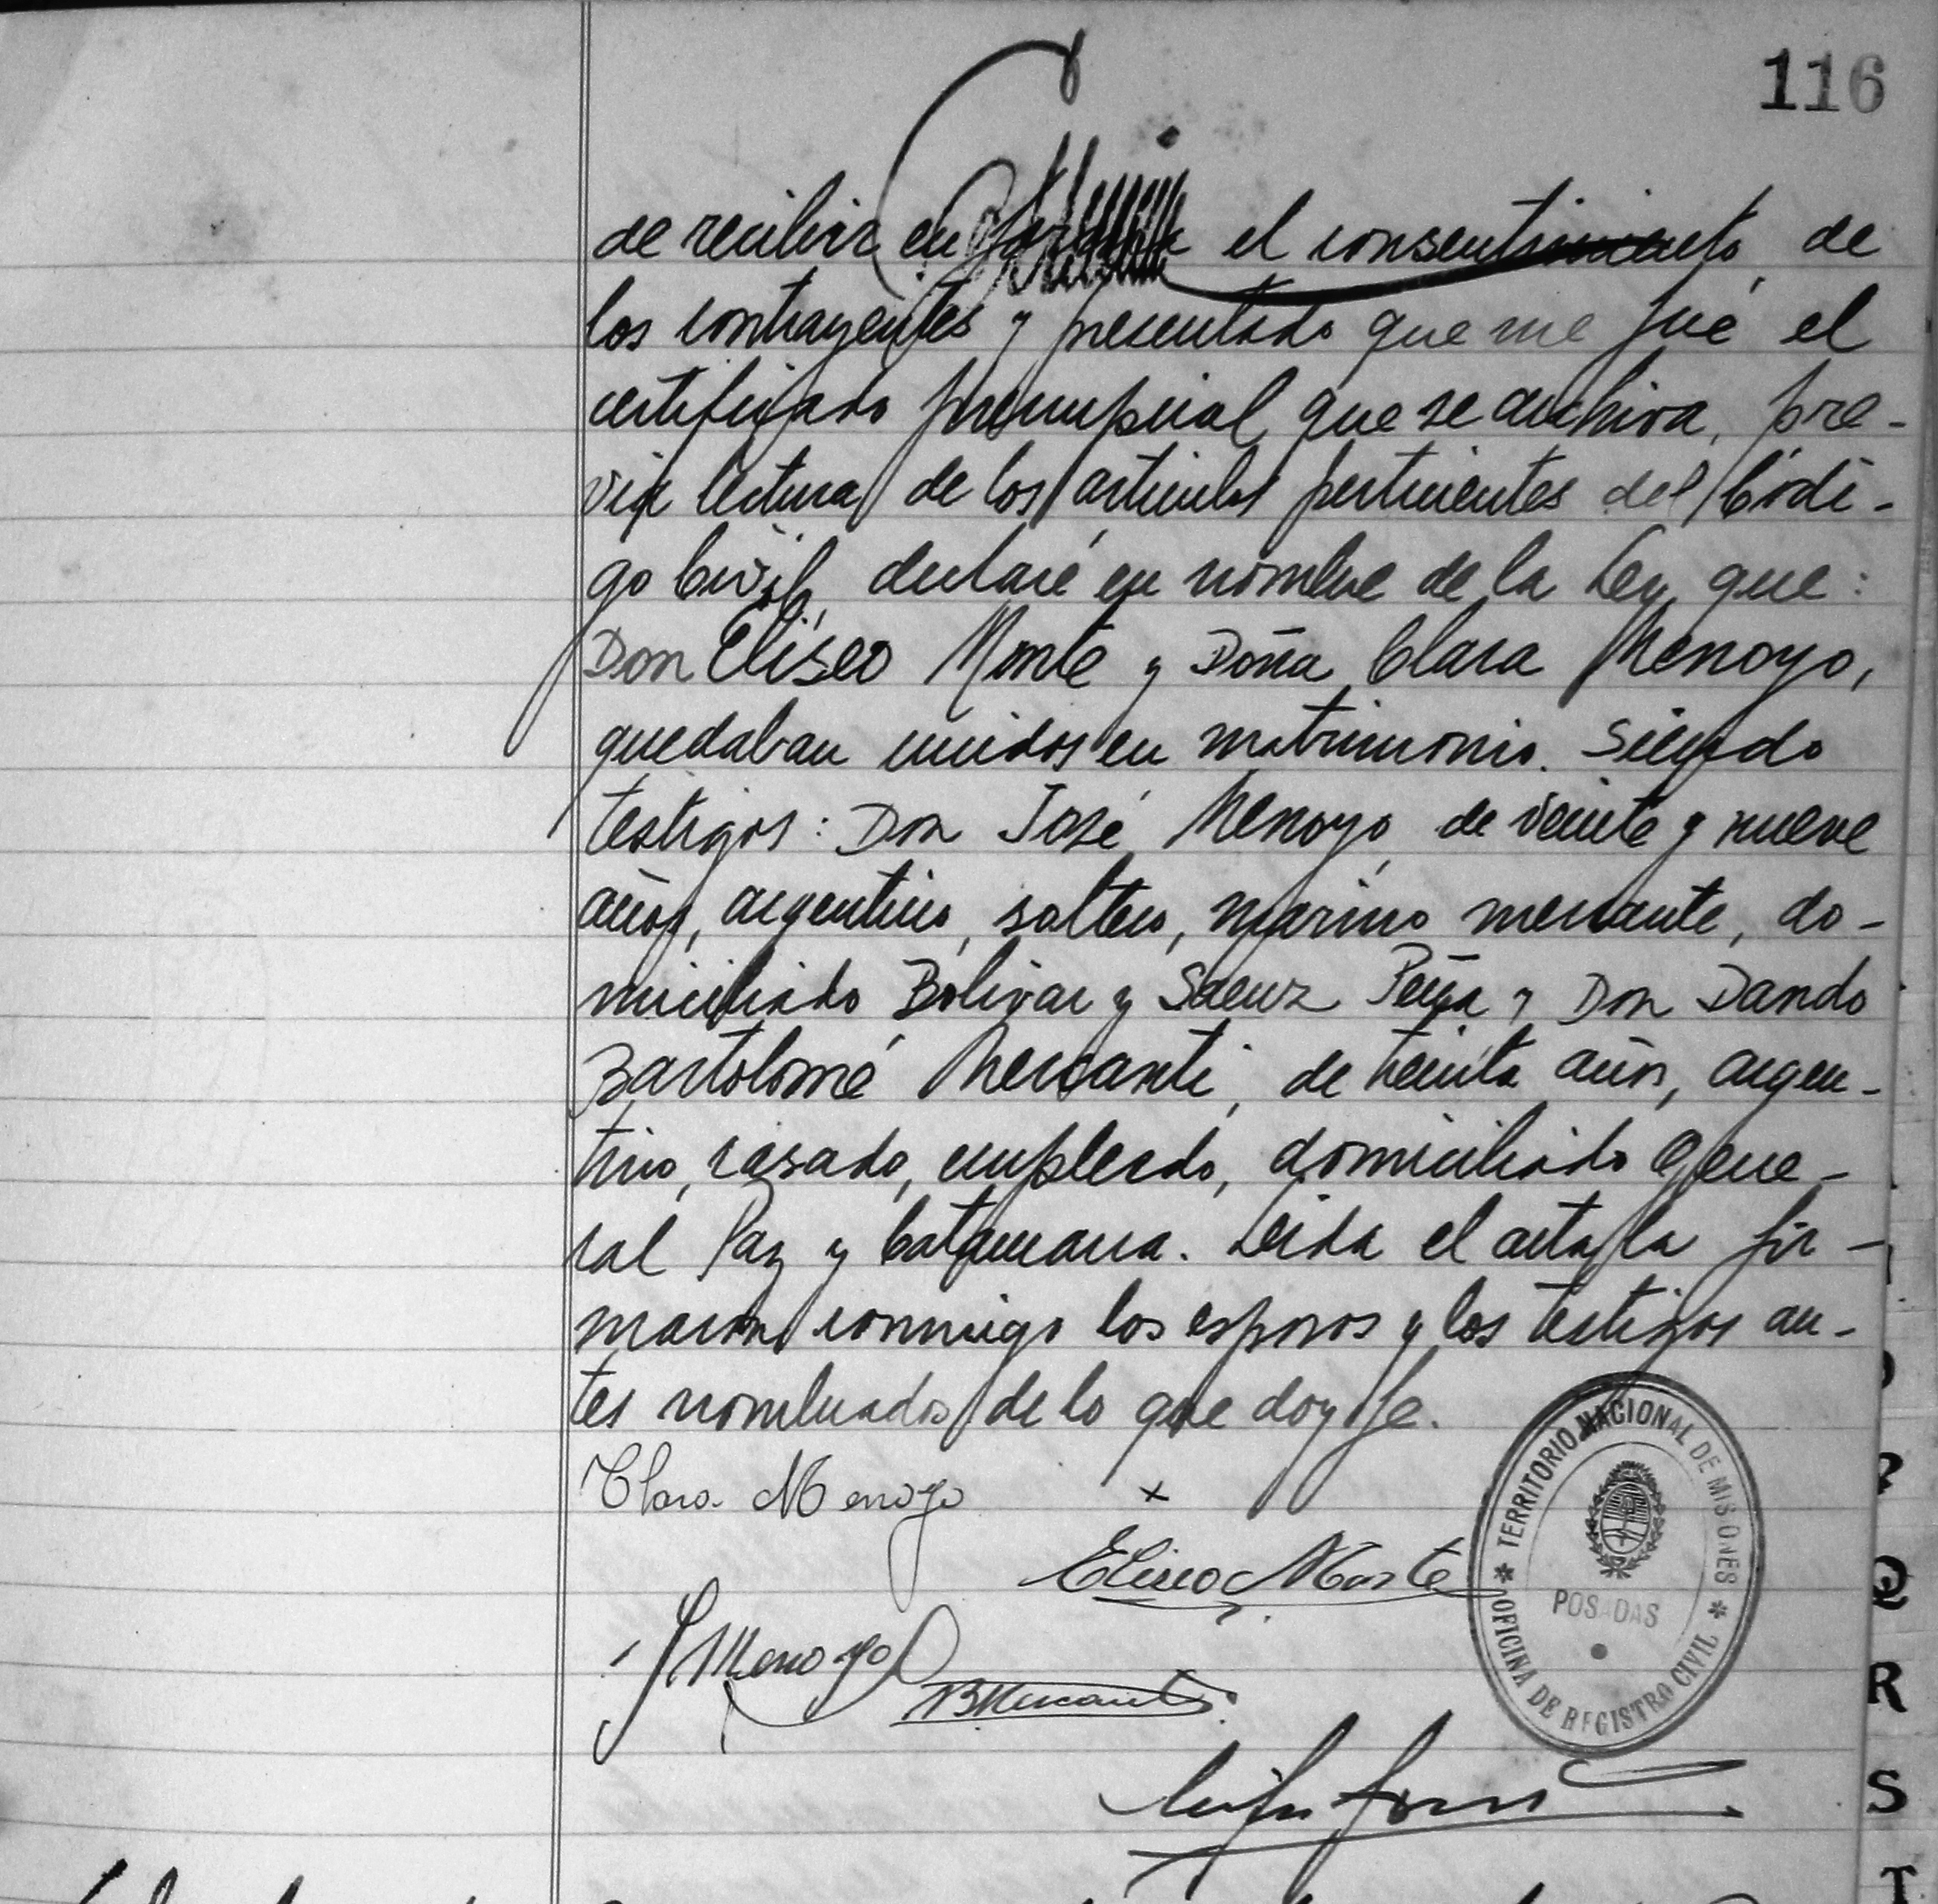 116
de recibir en forma el consentimiento de
los contrayentes y presentado que me fué el
certificado prenupcial, que se archiva, pre-
via lectura de los articulos pertinentes del Códi-
go Civil, declaré en nombre de la Ley que:
Don Eliseo Monte y Doña Clara Menoyo,
quedaban unidos en matrimonio. Siendo
testigos: Don José Menoyo, de veinte y nueve
años, argentino, soltero, marino mercante, do-
miciliado Bolivar y Saenz Peña y Don Dando
Bartolomé Mercanti, de treinta años, argen-
tino, casado, empleado, domiciliado Gene-
ral Paz y Catamarca. Leida el acta, la fir-
maron conmigo los esposos y los testigos an-
tes nombrados de lo que doy fe.
Clara Menoyo
x
Eliseo Monte
J Menoyo
B Mercanti
TERRITORIO NACIONAL DE MISIONES
POSADAS
OFICINA DE REGISTRO CIVIL
Q
R
S
T